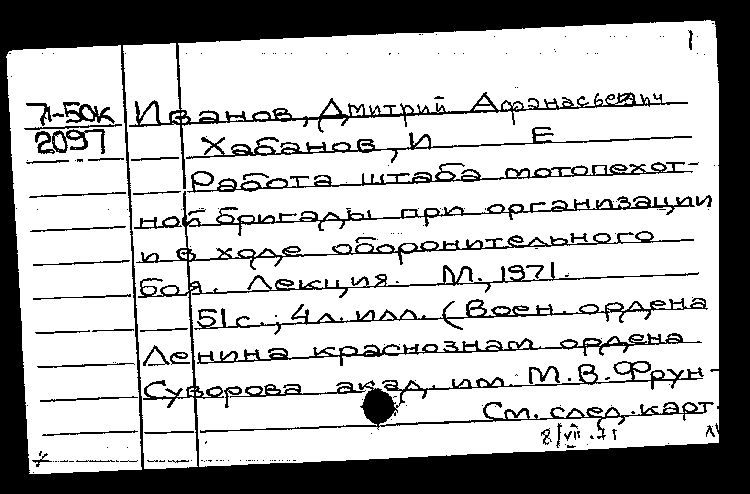 1
71-50к Иванов, Дмитрий Афанасьевич
2097 Хабанов, И Е
Работа штаба мотопехот-
ной бригады при организации
и в ходе оборонительного
боя. Лекция. М., 1971.
51 с.; 4 л. илл. (Воен. ордена
Ленина краснознам ордена
Суворова акад. им. М.В.Фрун-
См. след. карт.
8/VII.71